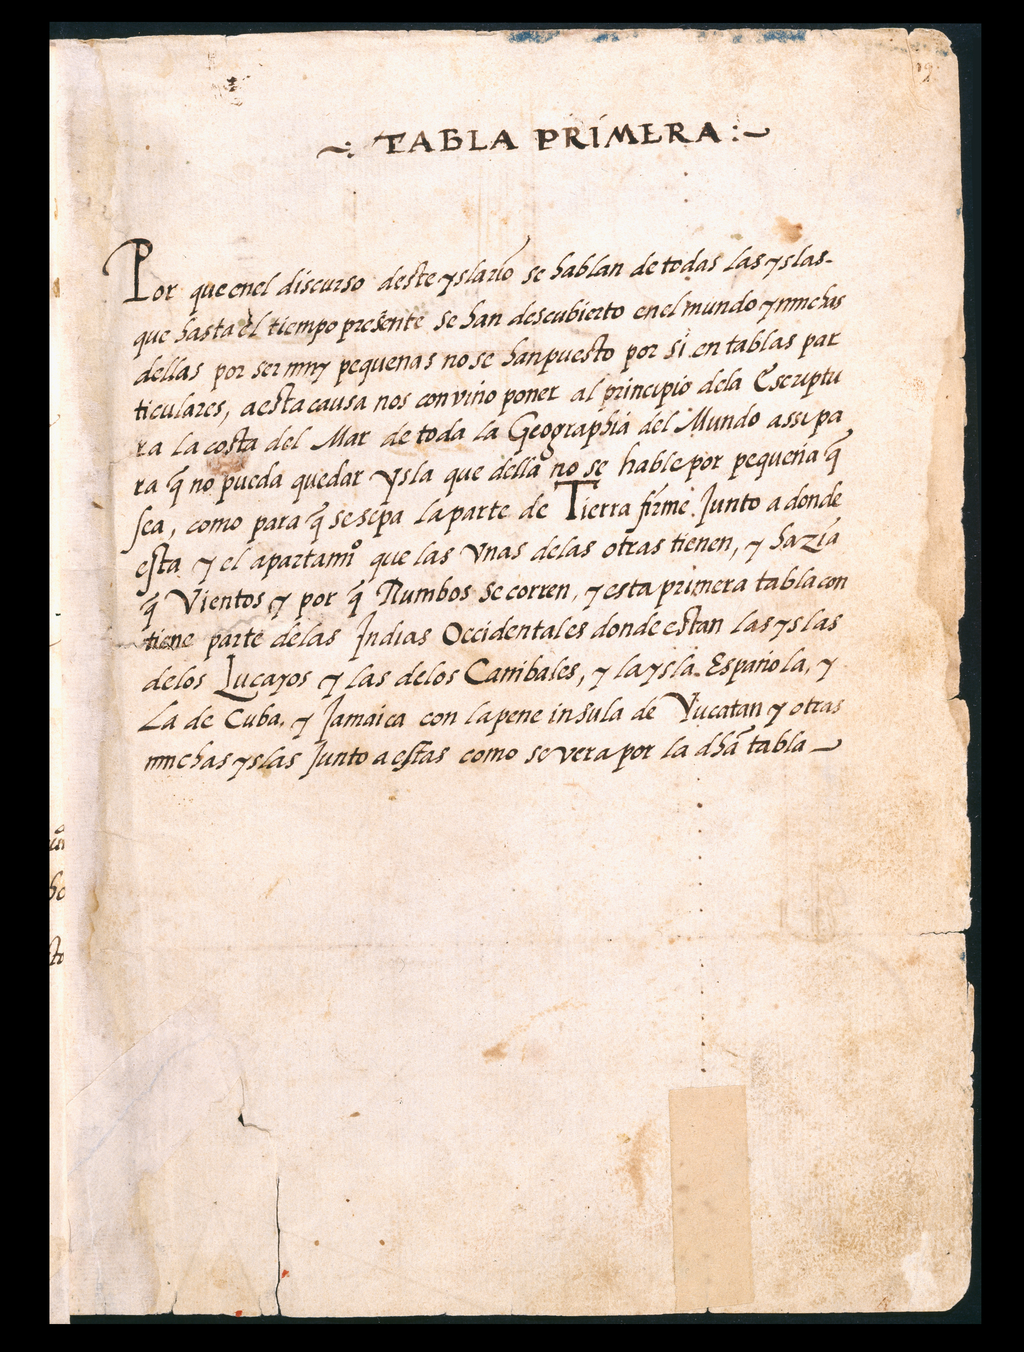 19
~: TABLA PRIMERA :~
Por que enel discurso deste yslario se hablan de todas las yslas
que hasta el tiempo presente se han descubierto enel mundo y muchas
dellas por ser muy pequenas no se han puesto por si en tablas par
ticulares, a esta causa nos convino poner al principio dela Escriptu
ra la costa del Mar de toda la Geographia del Mundo assi pa
ra q̃ no pueda quedar ysla que della no se hable por pequeña q̃
sea, como para q̃ se sepa la parte de Tierra firme Junto a donde
esta y el apartamiº que las Vnas delas otras tienen, y hazia
q̃ Vientos y por q̃ Rumbos se corren, y esta primera tabla con
tiene parte delas Indias Occidentales donde estan las yslas
delos Lucayos y las delos Canibales, y la ysla Española, y
La de Cuba. y Jamaica con la pene insula de Yucatan y otras
muchas yslas Junto a estas como se vera por la dh̃a tabla ~